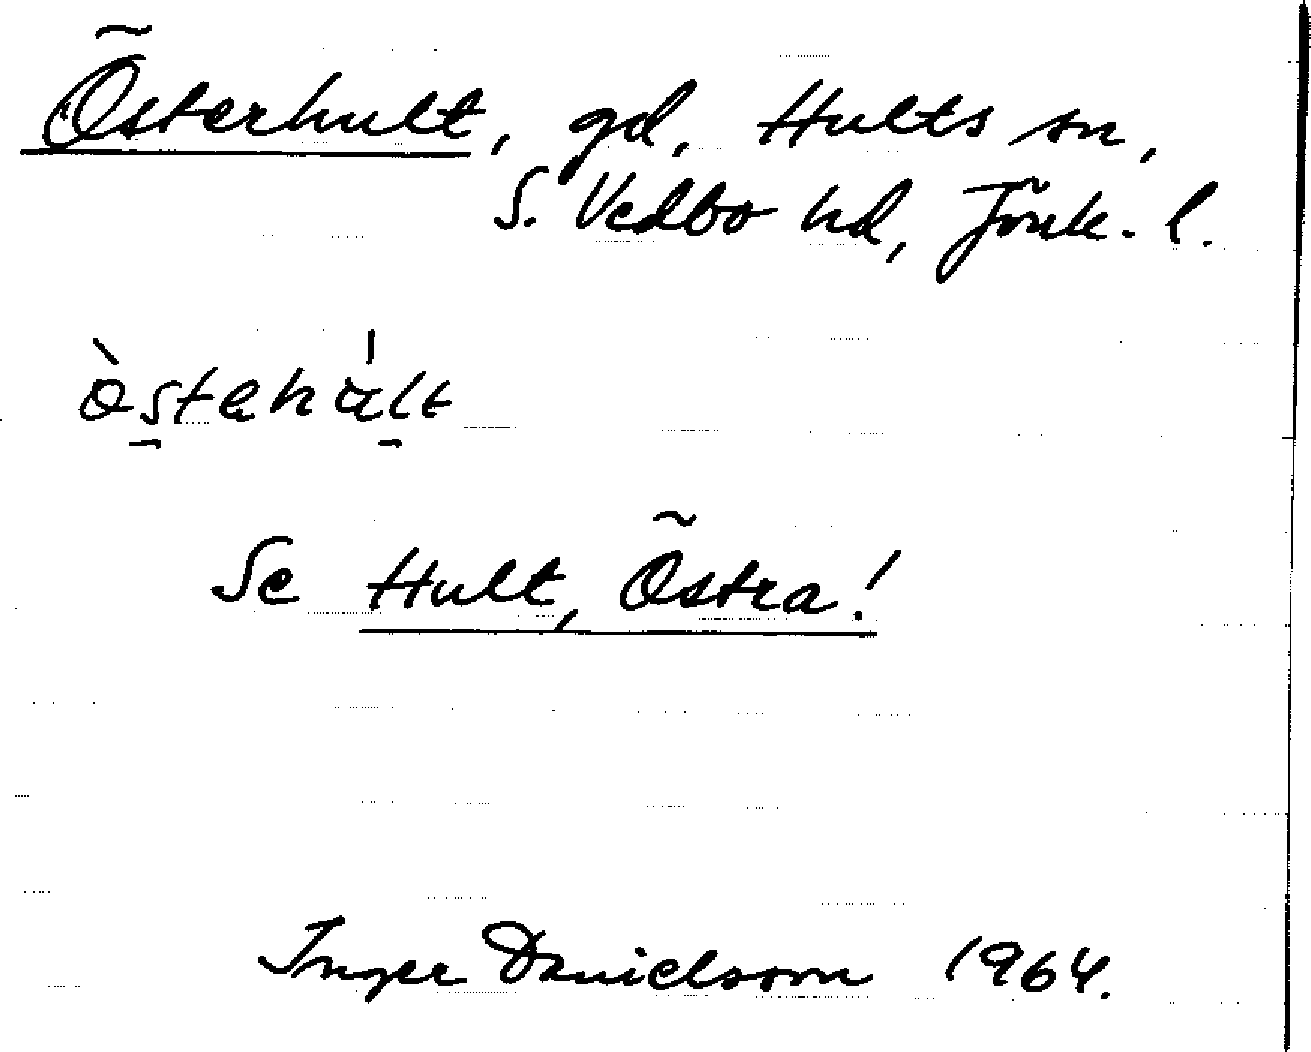 Österhult, gd, Hults sn,
S. Vedbo hd, Jönk. l.
Se Hult, Östra!
Inger Danielsson 1964.